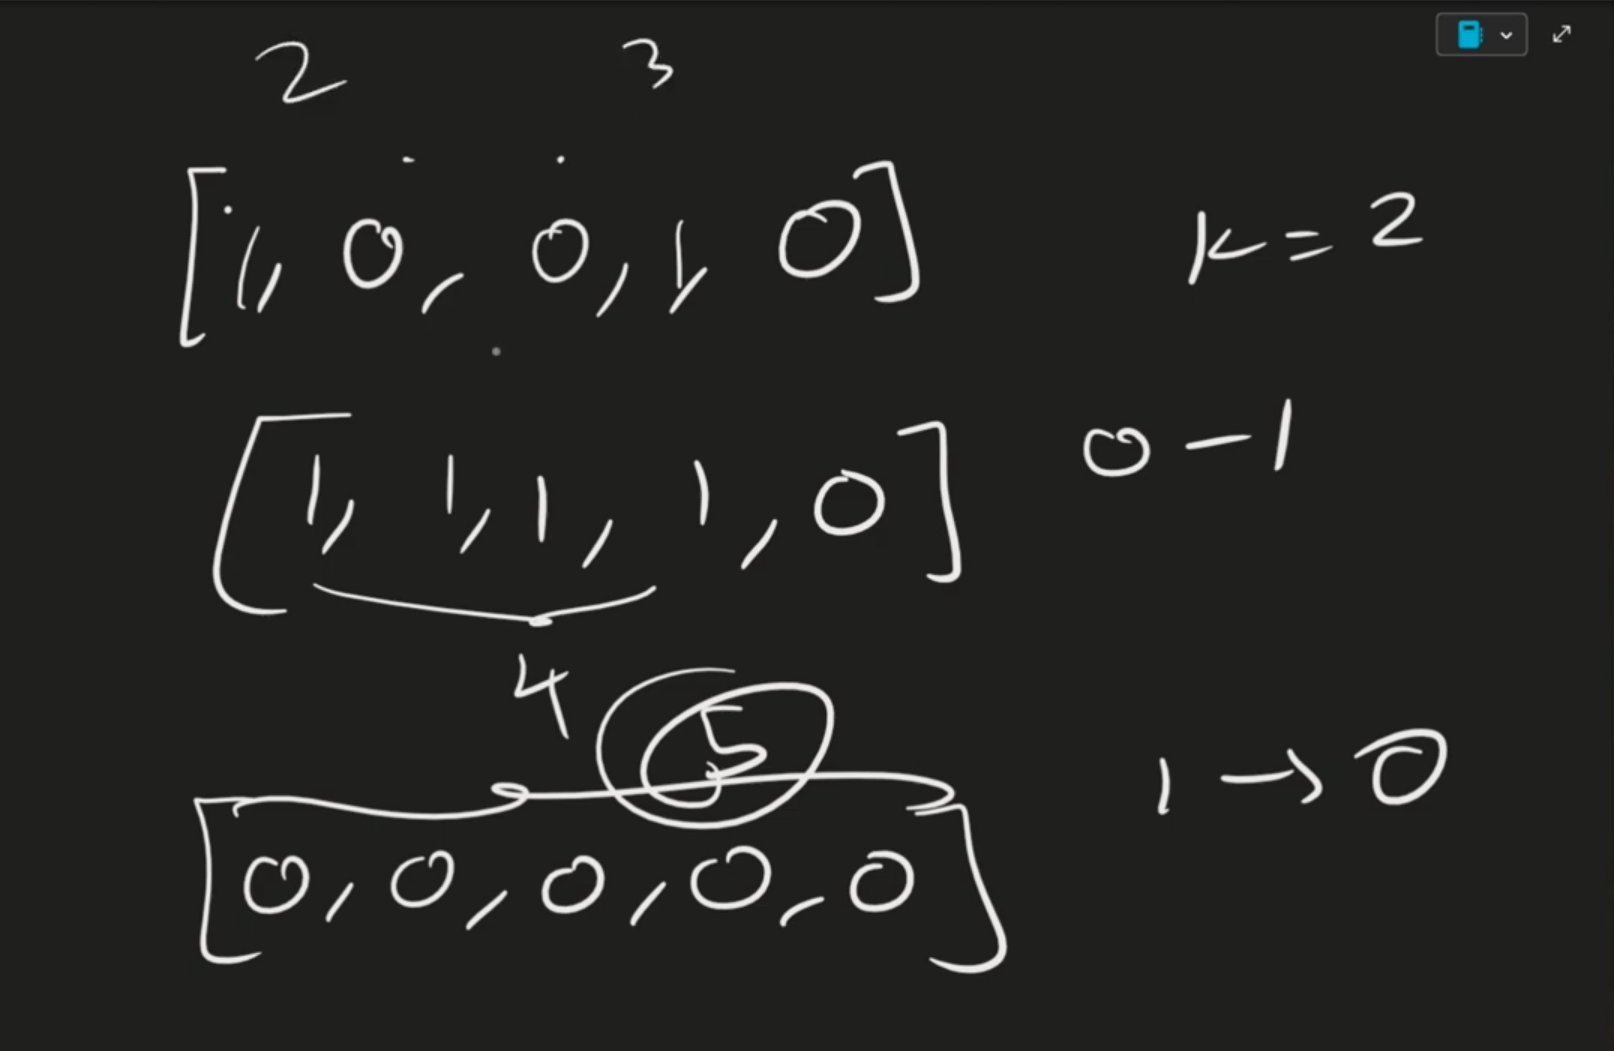 2 3
[1, 0, 0, 1, 0] k = 2
[1, 1, 1, 1, 0] 0 - 1
4 5
1 → 0
[0, 0, 0, 0, 0]